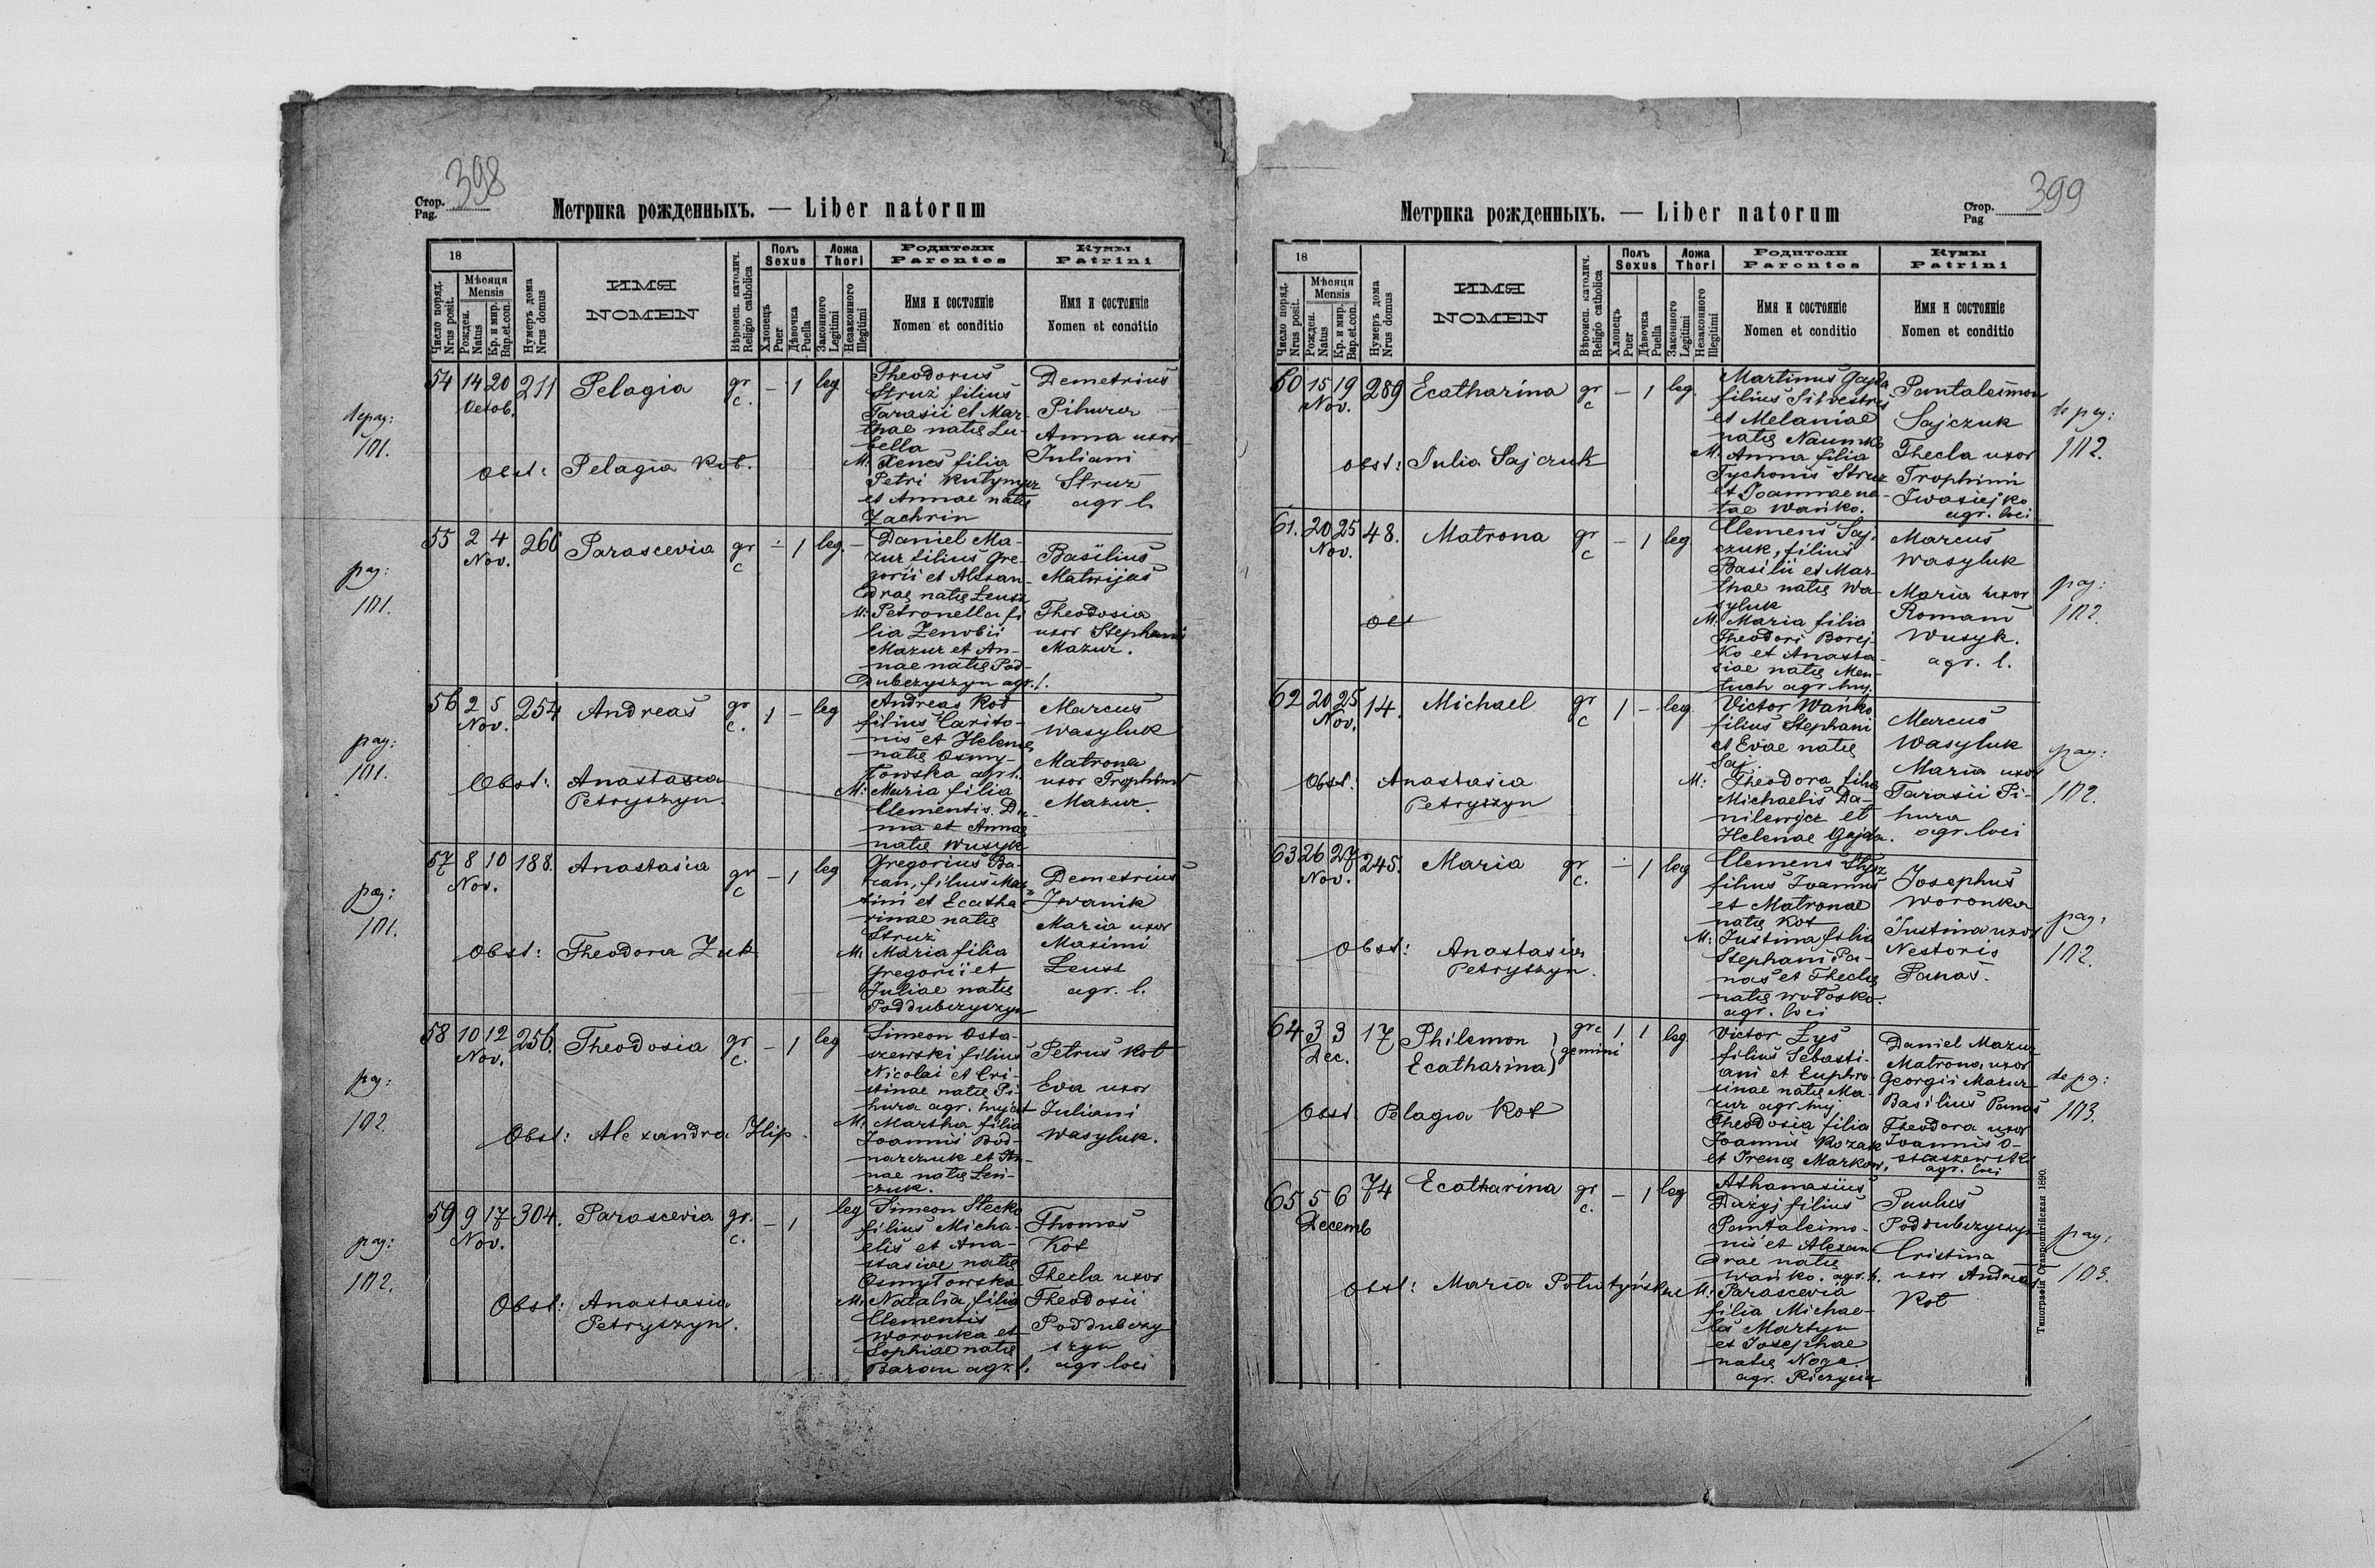 Стор.
Pag.
398
Метрика рожденныхъ. — Liber natorum
18
Число поряд.
Nrus posit.
Мѣсяця
Mensis
Рожден.
Natus
Кр. и мир.
Bap.et.con.
Нумеръ дома
Nrus domus
ИМЯ
NOMEN
Вѣроисп. католич.
Religio catholica
Полъ
Sexus
Хлопецъ
Puer
Дѣвочка
Puella
Ложа
Thori
Законного
Legitimi
Незаконного
Illegitimi
Родители
Parentes
Имя и состоянiе
Nomen et conditio
Кумы
Patrini
Имя и состоянiе
Nomen et conditio
54 14 20 211 Pelagia gr c. – 1 leg
Octob.
101.
obst: Pelagia Kot.
Theodorus
Struz filius
Tarasii et Mar-
thae natę Lu-
bella
M: Xenes filia
Petri
et Annae natę
Zachrin
Demetrius
Pihura
Anna uxor
Iuliani
Struz
agr l.
55 2 4 266 Parascevia gr c – 1 leg.
Nov.
pag:
101.
Daniel Ma-
zur filius Gre-
gorii et Alexan-
drae natę Leusz
M: Petronella fi
lia Zenobii
Mazur et An-
nae natę Pod-
dubczyszyn agr. l.
Basilius
Matwijas
Theodosia
uxor Stephani
Mazur.
56 2 5 254 Andreas gr c. 1 – leg
Nov.
pag:
101.
Obst: Anastasia
Petryszyn.
Andreas Kot
filius Carito-
nis et Helenę
natę Osmy-
łowska agr l.
M: Maria filia
Clementis Du-
ma et Annae
natę Wusyk
Marcus
Wasyluk
Matrona
uxor Trophimi
Mazur
57 8 10 188. Anastasia gr c – 1 leg
Nov.
pag:
101.
Obst: Theodora Zuk
Gregorius Ba-
ran, filius Mar-
tini et Ecatha
rinae natę
Struz
M: Maria filia
Gregorii et
Iuliae natę
Poddubczyszyn
Demetrius
Iwanik
Maria uxor
Maximi
Leusz
agr. l.
58 10 12 256. Theodosia gr c. – 1 leg
Nov.
pag:
102
Obst: Alexandra Hip.
Simeon Osta-
szewski filius
Nicolai et Cri-
stinae natę Pi-
hura agr. hujat
M: Martha filia
Joannis Bod-
narczuk et An-
nae natę Len-
czuk.
Petrus Kot
Eva uxor
Iuliani
Wasyluk.
59 9 17 304. Parascevia gr. c. – 1 leg
Nov.
pag:
102.
Obst: Anastasia
Petryszyn.
Simeon Stecko
filius Micha-
elis et Ana-
stasiae natę
Osmyłowska
M: Natalia filia
Clementis
Woronka et
Sophiae natę
Baran agr. l.
Thomas
Kot
Thecla uxor
Theodosii
Poddubczy
szyn
agr loci
Стор.
Pag
399
Метрика рожденныхъ. — Liber natorum
18
Число поряд.
Nrus posit.
Мѣсяця
Mensis
Рожден.
Natus
Кр. и мир.
Bap.et.con.
Нумеръ дома
Nrus domus
ИМЯ
NOMEN
Вѣроисп. католич.
Religio catholica
Полъ
Sexus
Хлопецъ
Puer
Дѣвочка
Puella
Ложа
Thori
Законного
Legitimi
Незаконного
Illegitimi
Родители
Parentes
Имя и состоянiе
Nomen et conditio
Кумы
Patrini
Имя и состоянiе
Nomen et conditio
60 15 19 289 Ecatharina gr c – 1 leg.
Nov.
obst: Iulia Sajczuk
Martinus Gajda
filius Silvestris
et Melaniae
natę Naumko
M: Anna filia
Tychonis Struz
et Joannae na-
tae Wańko.
Pantaleimon
Sajczuk
Thecla uxor
Trophimi
Iwasiejko
agr. loci
de pag:
102.
61. 20 25 48. Matrona gr c – 1 leg
Nov.
Clemens Saj-
czuk, filius
Basilii et Mar-
thae natę Wa-
syluk
M: Maria filia
Theodori Borej-
ko et Anasta-
siae natę Men-
tuch agr. huj.
Marcus
Wasyluk
Maria uxor
Romani
Wusyk.
agr. l.
pag:
102.
62 20 25 14. Michael gr c 1 – leg.
Nov.
Obst: Anastasia
Petryszyn
Victor Wańko
filius Stephani
et Evae natę
Saj
M: Theodora filia
Michaelis Da-
nilewicz et
Helenae Gajda.
Marcus
Wasyluk
Maria uxor
Tarasii Pi-
hura
agr. loci
pag:
102.
63 26 27 245. Maria gr c. – 1 leg
Nov.
Obst: Anastasia
Petryszyn.
Clemens
filius Joannis
et Matronae
natę Kot
M: Justina filia
Stephani Pa-
nas et Theclę
natę Wołosko.
agr. loci
Josephus
Woronka
Justina uxor
Nestoris
Panas.
pag:
102.
64 3 3 17 Philemon gr c 1 1 leg
Dec. Ecatharina } gemini
Obst Pelagia Kot
Victor Zys
filius Sebasti-
ani et Euphro-
sinae natę Ma-
zur agr huj
Theodosia filia
Joannis Kozak
et Irenę Markow.
Daniel Mazur
Matrona uxor
Georgii Mazur
Basilius Panas
Theodora uxor
Joannis O-
staszewski
agr. loci
de pg:
103.
65 5 6 74 Ecatharina gr c. – 1 leg
Decemb
obst: Maria Polutyńska
Athanasius
Dazyj filius
Pantaleimo-
nis et Alexan
drae natę
Wańko. agr. h.
M: Parascevia
filia Michae-
lis Martyn
et Josephae
natę Noga.
agr. Riczycia
Paulus
Poddubczyszyn
Cristina
uxor Andreae
Kot
pag:
103.
Типографія Ставропигійская 1890.